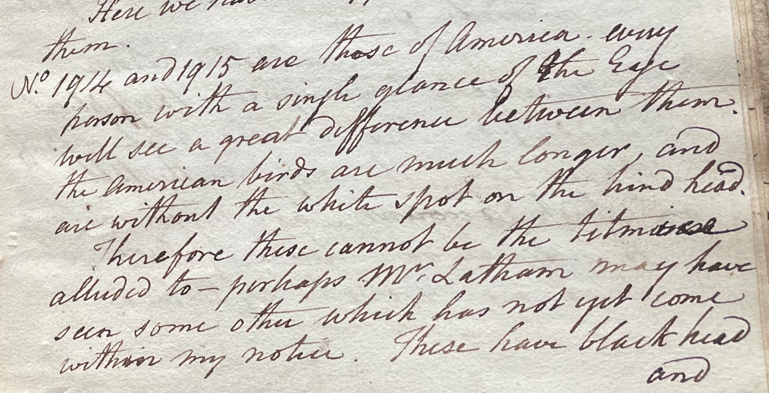 Here we
them.
No. 1914 and 1915 are those of America. every
person with a single glance of the Eye
will see a great difference between them.
the American birds are much longer, and
are without the white spot on the hind head.
Therefore these cannot be the titmouse
alluded to – perhaps Mr Latham may have
seen some other which has not yet come
within my notice. These have black head
and